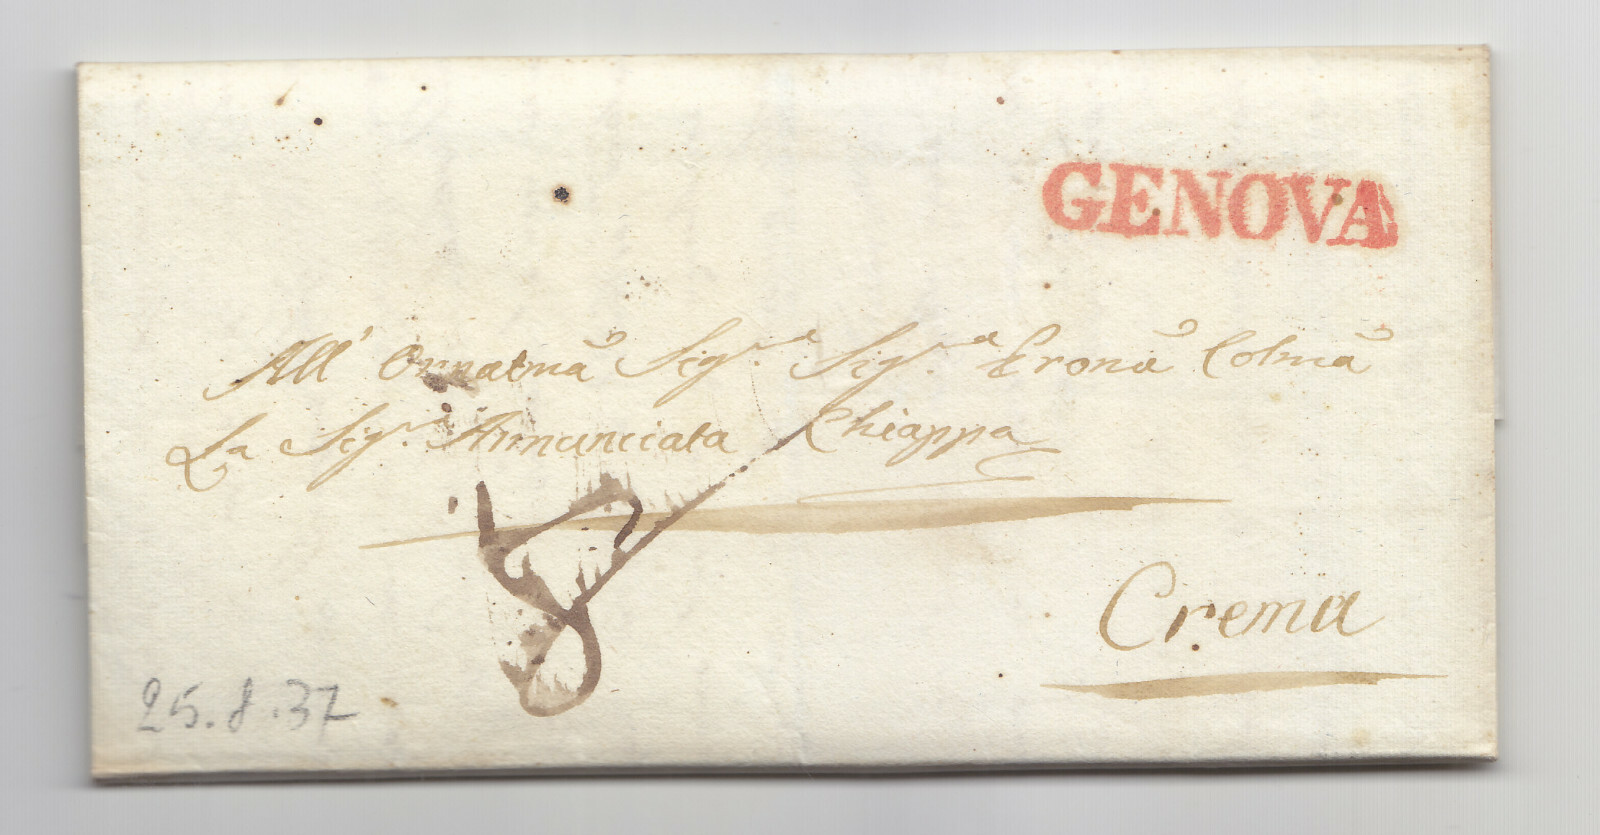 GENOVA
All' Ornatma Sigr.a Sigr.a Prona Colma
La Sigr.a Annunciata Chiappa
8
Crema
25.8.37